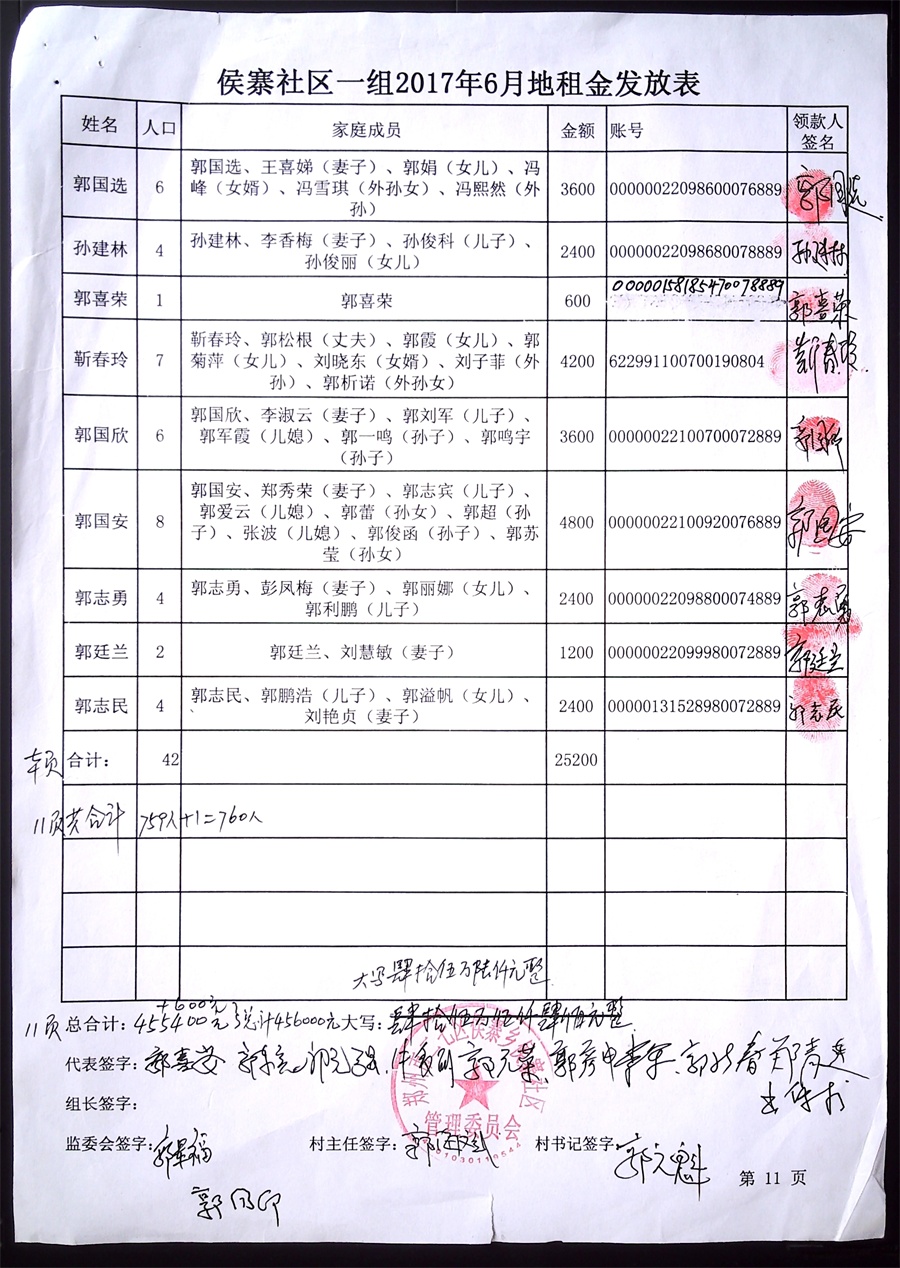 侯寨社区一组2017年6月地租金发放表
姓名 人口 家庭成员 金额 账号 领款人
签名
郭国选 6 郭国选、王喜娣（妻子）、郭娟（女儿）、冯
峰（女婿）、冯雪琪（外孙女）、冯熙然（外
孙） 3600 00000022098600076889 郭国选
孙建林 4 孙建林、李香梅（妻子）、孙俊科（儿子）、
孙俊丽（女儿） 2400 00000022098680078889 孙建林
郭喜荣 1 郭喜荣 600 00000158185470078889 郭喜荣
靳春玲 7 靳春玲、郭松根（丈夫）、郭霞（女儿）、郭
菊萍（女儿）、刘晓东（女婿）、刘子菲（外
孙）、郭析诺（外孙女） 4200 622991100700190804 靳春玲
郭国欣 6 郭国欣、李淑云（妻子）、郭刘军（儿子）、
郭军霞（儿媳）、郭一鸣（孙子）、郭鸣宇
（孙子） 3600 00000022100700072889 郭国欣
郭国安 8 郭国安、郑秀荣（妻子）、郭志宾（儿子）、
郭爱云（儿媳）、郭蕾（孙女）、郭超（孙
子）、张波（儿媳）、郭俊函（孙子）、郭苏
莹（孙女） 4800 00000022100920076889 郭国安
郭志勇 4 郭志勇、彭凤梅（妻子）、郭丽娜（女儿）、
郭利鹏（儿子） 2400 00000022098800074889 郭志勇
郭廷兰 2 郭廷兰、刘慧敏（妻子） 1200 00000022099980072889 郭廷兰
郭志民 4 郭志民、郭鹏浩（儿子）、郭溢帆（女儿）、
刘艳贞（妻子） 2400 00000131528980072889 郭志民
本页 合计： 42 25200
11页共合计 759人+1=760人
大写肆拾伍万陆仟元整
+600元
11页 总合计：455400元 总计456000元 大写：肆拾伍万伍仟肆佰元整
代表签字：
组长签字：
监委会签字： 村主任签字： 村书记签字：郭元魁
郭国印
管理委员会
第 11 页